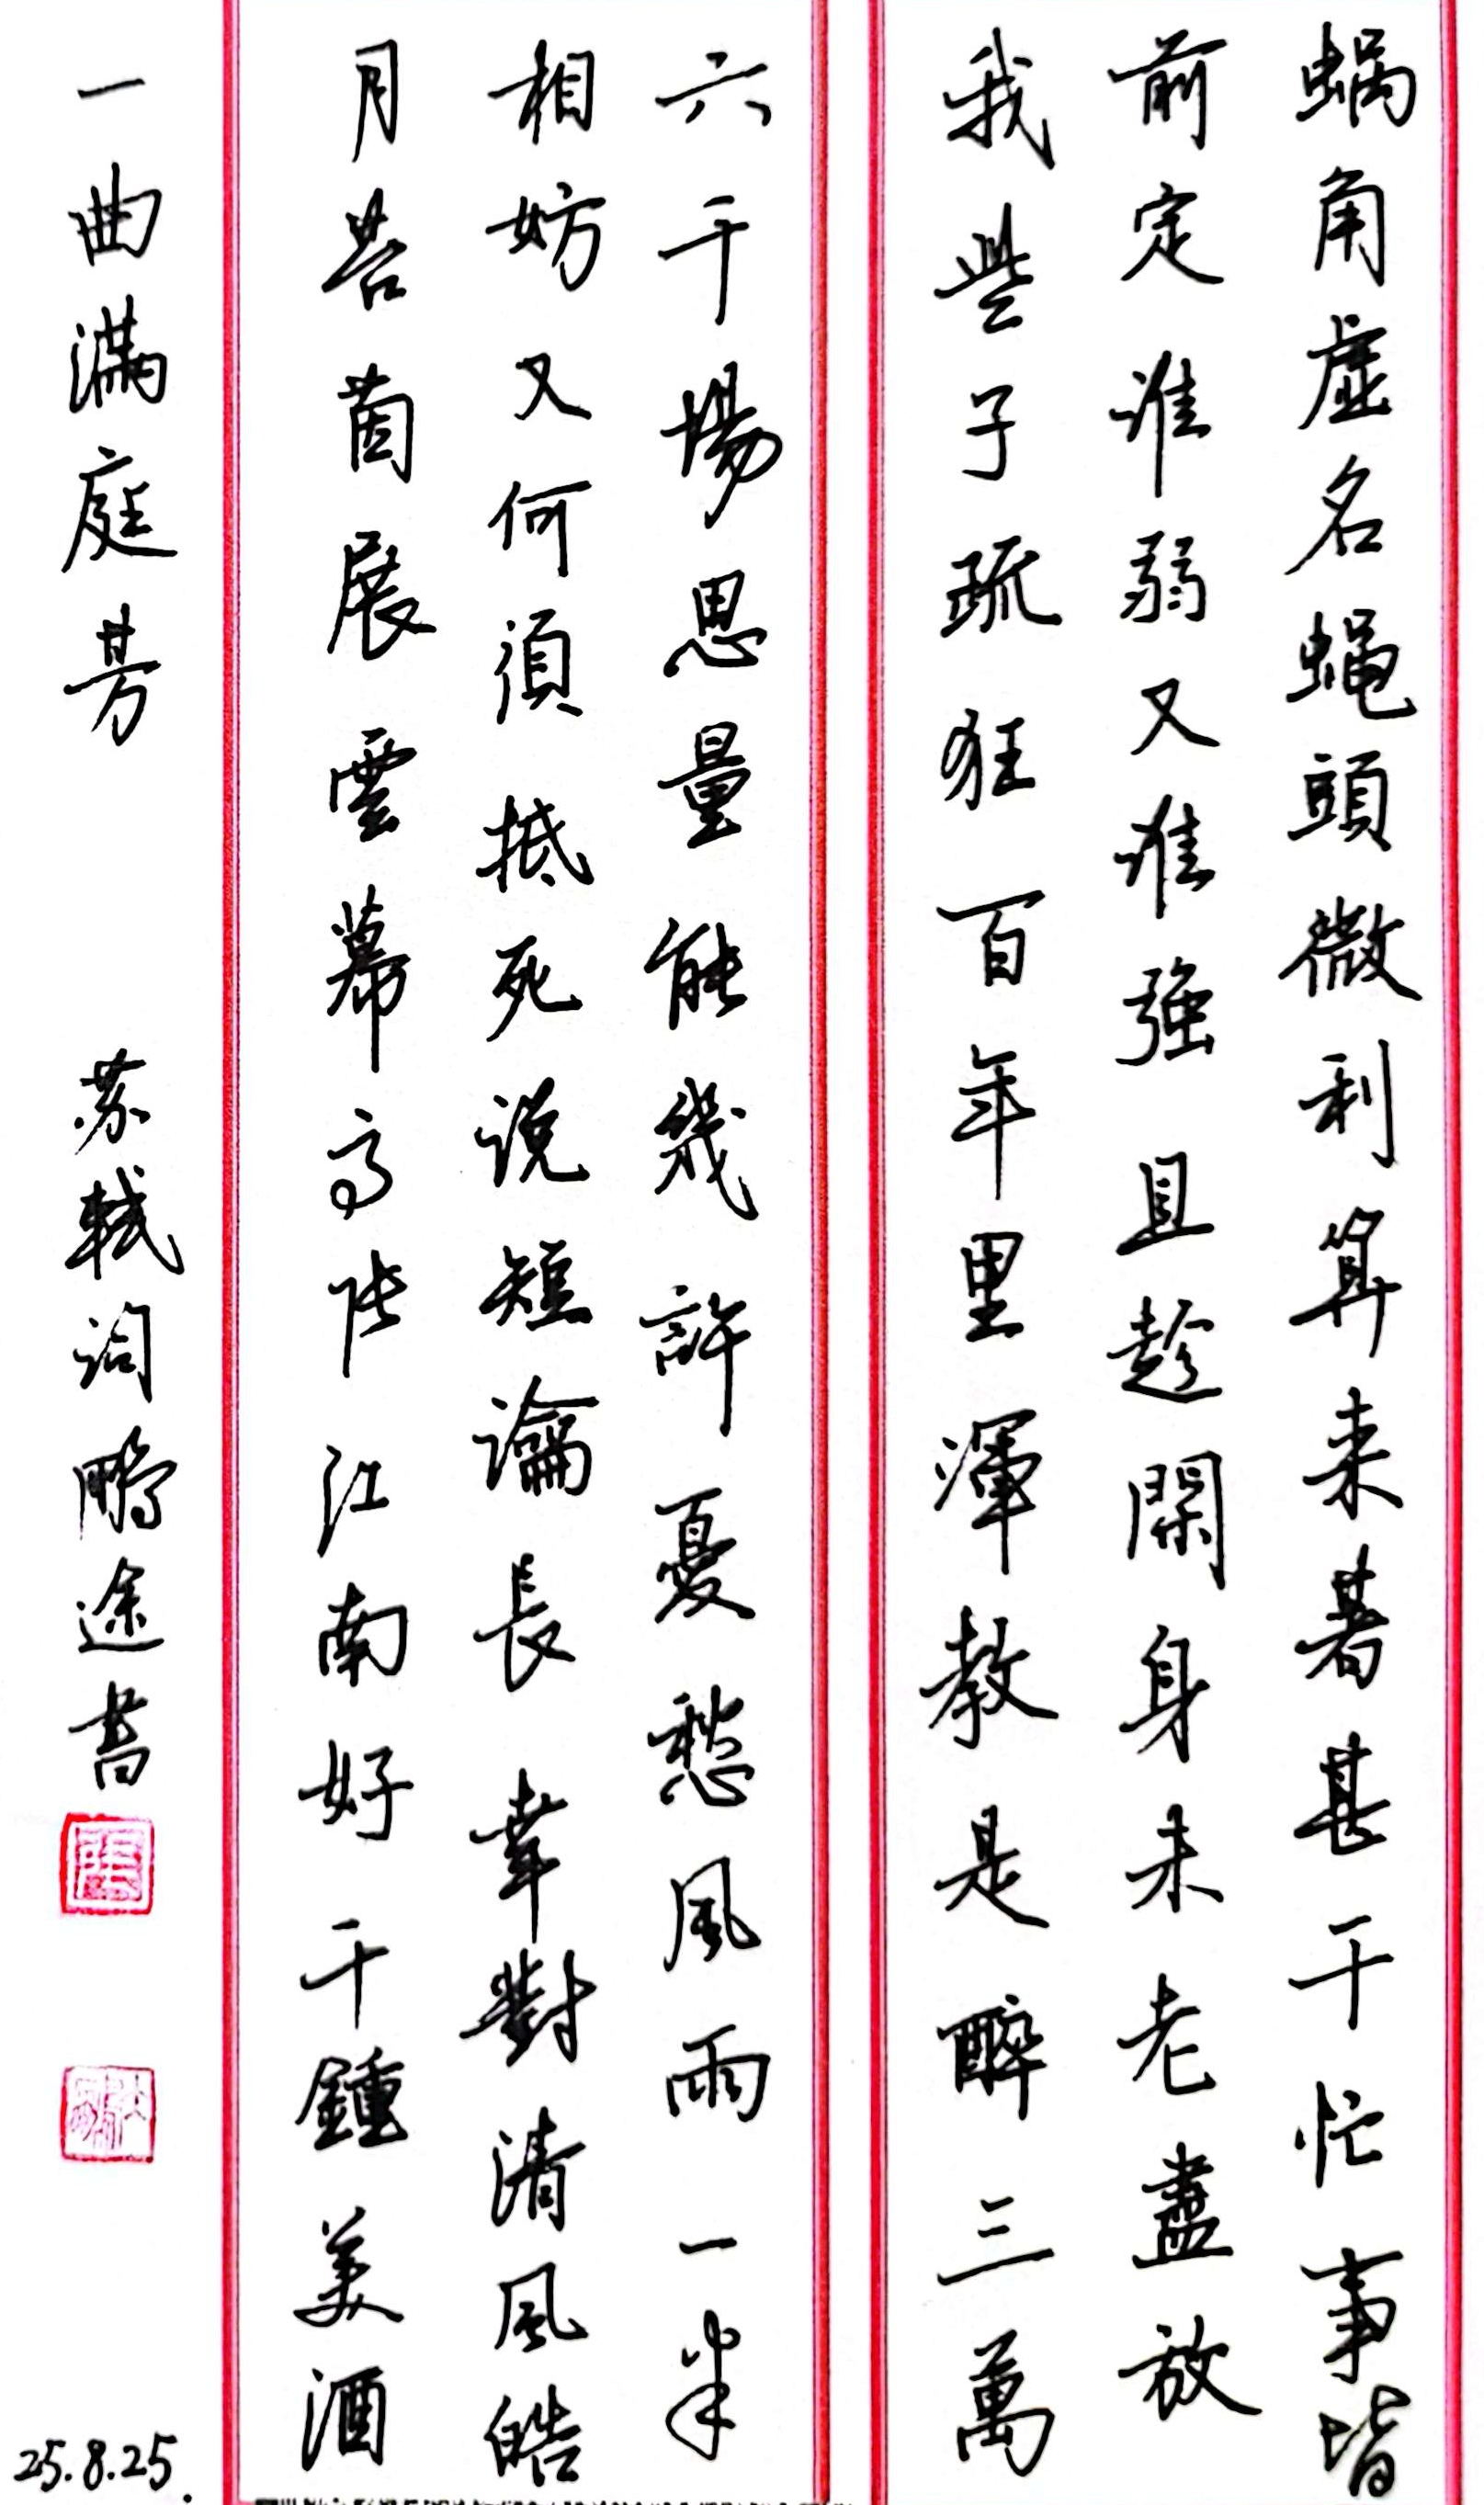 蝸角虛名蠅頭微利算来著甚干忙事皆
前定谁弱又谁強且趁閑身未老盡放
我些子疏狂百年里渾教是醉三萬
六千場思量能幾許憂愁風雨一半
相妨又何須抵死说短論長幸對清風皓
月苔茵展雲幕高张江南好千鍾美酒
一曲滿庭芳 苏轼词鹏途书
25.8.25.